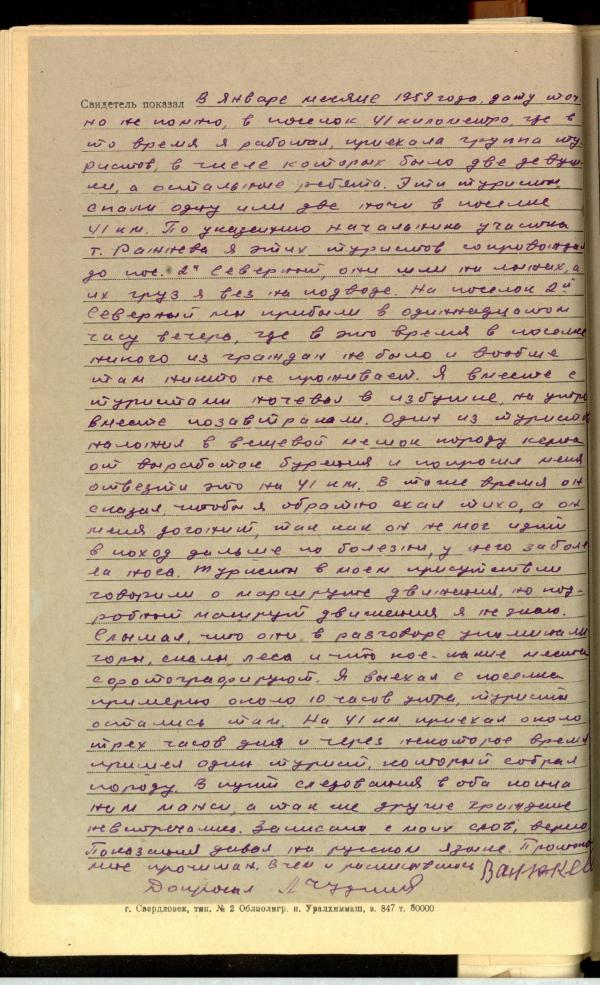 Свидетель показал В январе месяце 1959 года, дату точ-
но не помню, в поселок 41 километра, где в
то время я работал, приехала группа ту-
ристов, в числе которых было две девуш-
ки, а остальные ребята. Эти туристы
спали одну или две ночи в поселке
41 км. По указанию начальника участка
т. Ражнева я этих туристов сопровождал
до пос. 2й Северный, они шли на лыжах, а
их груз я вез на подводе. На поселок 2й
Северный мы прибыли в одиннадцатом
часу вечера, где в это время в поселке
никого из граждан не было и вообще
там никто не проживает. Я вместе с
туристами ночевал в избушке, на утро
вместе позавтракали. Один из туристов
наложил в вещевой мешок породу керна
от выработок бурения и попросил меня
отвезти это на 41 км. В то же время он
сказал, чтобы я обратно ехал тихо, а он
меня догонит, так как он не мог идти
в поход дальше по болезни, у него заболе-
ла нога. Туристы в моем присутствии
говорили о маршруте движения, но под-
робный маршрут движения я не знаю.
Слышал, что они в разговоре упоминали
горы, скалы, леса и что кое-какие места
сфотографируют. Я выехал с поселка
примерно около 10 часов утра, туристы
остались там. На 41 км приехал около
трех часов дня и через некоторое время
пришел один турист, который собрал
породу. В пути следования в оба конца
нам манси, а так же другие граждане
не встречались. Записано с моих слов, верно.
Показания давал на русском языке. Протокол
мне прочитан. В чем и расписываюсь
Допросил
г. Свердловск, тип. № 2 Облполигр. п. Уралхиммаш, з. 847 т. 80000